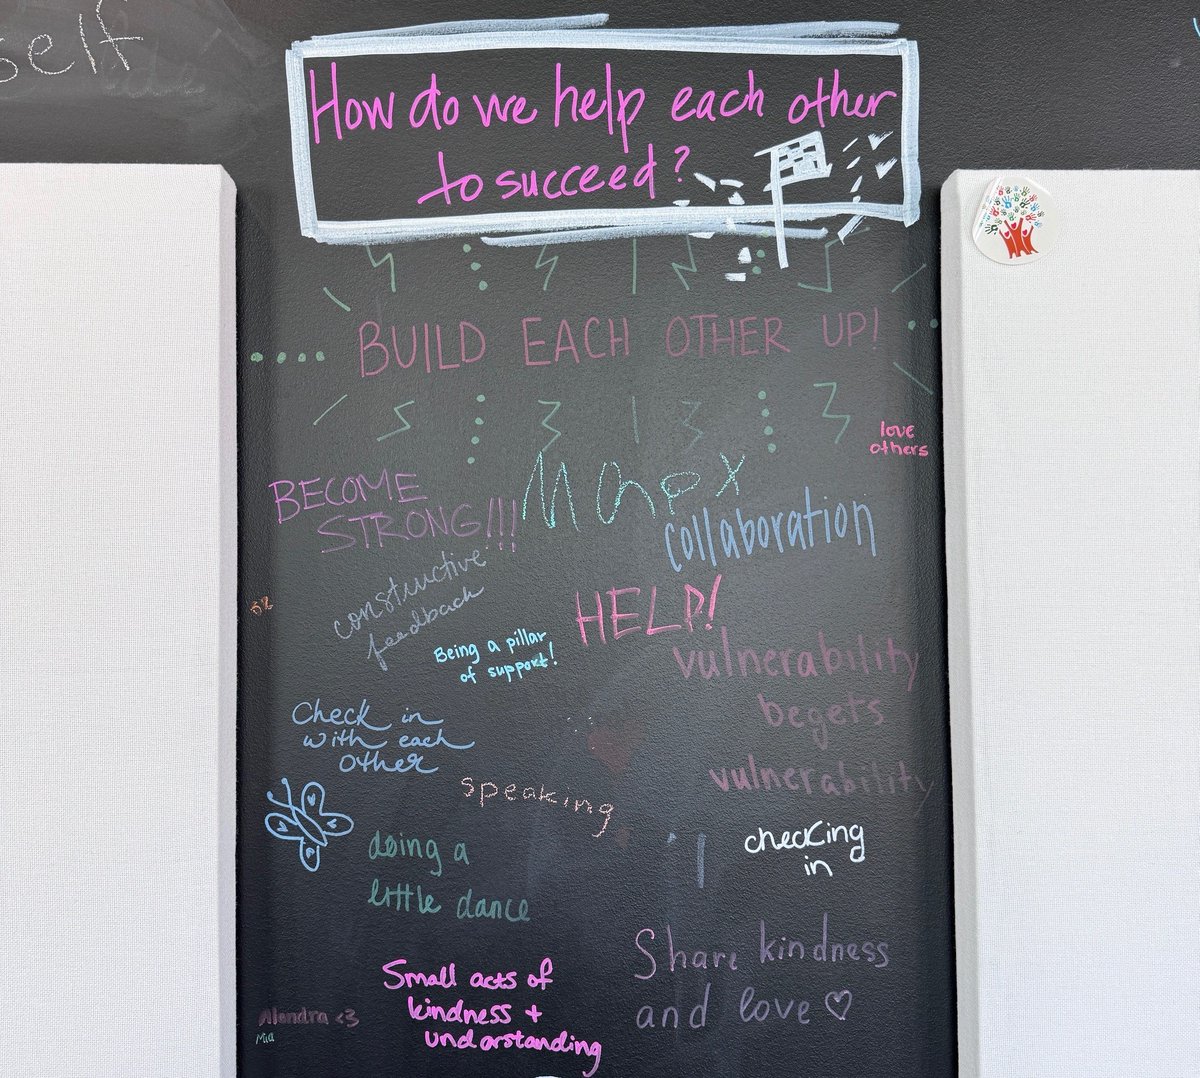 self
How do we help each other
to succeed?
BUILD EACH OTHER UP!
love
others
BECOME
STRONG!!!
collaboration
constructive
feedback
HELP!
Being a pillar
of support!
vulnerability
begets
vulnerability
Check in
with each
other
speaking
doing a
little dance
checking
in
Share kindness
and love ♡
Small acts of
kindness +
understanding
Alondra <3
Mia